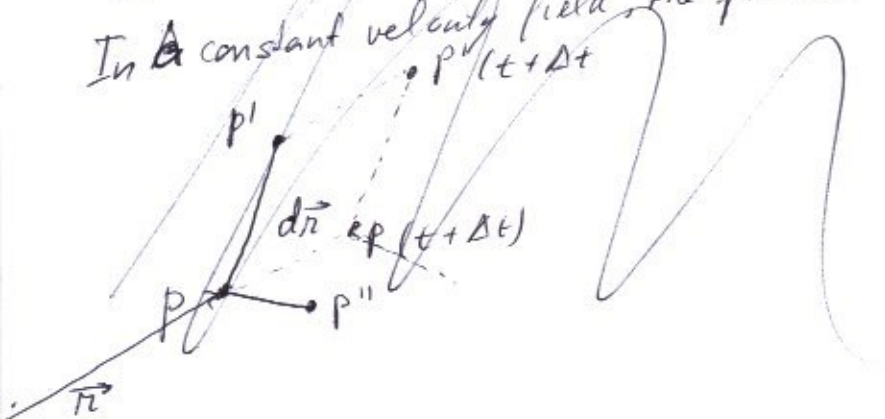 In a constant velocity field, the
p' (t + Δt
p'
dr⃗
p (t + Δt)
p
p"
r⃗